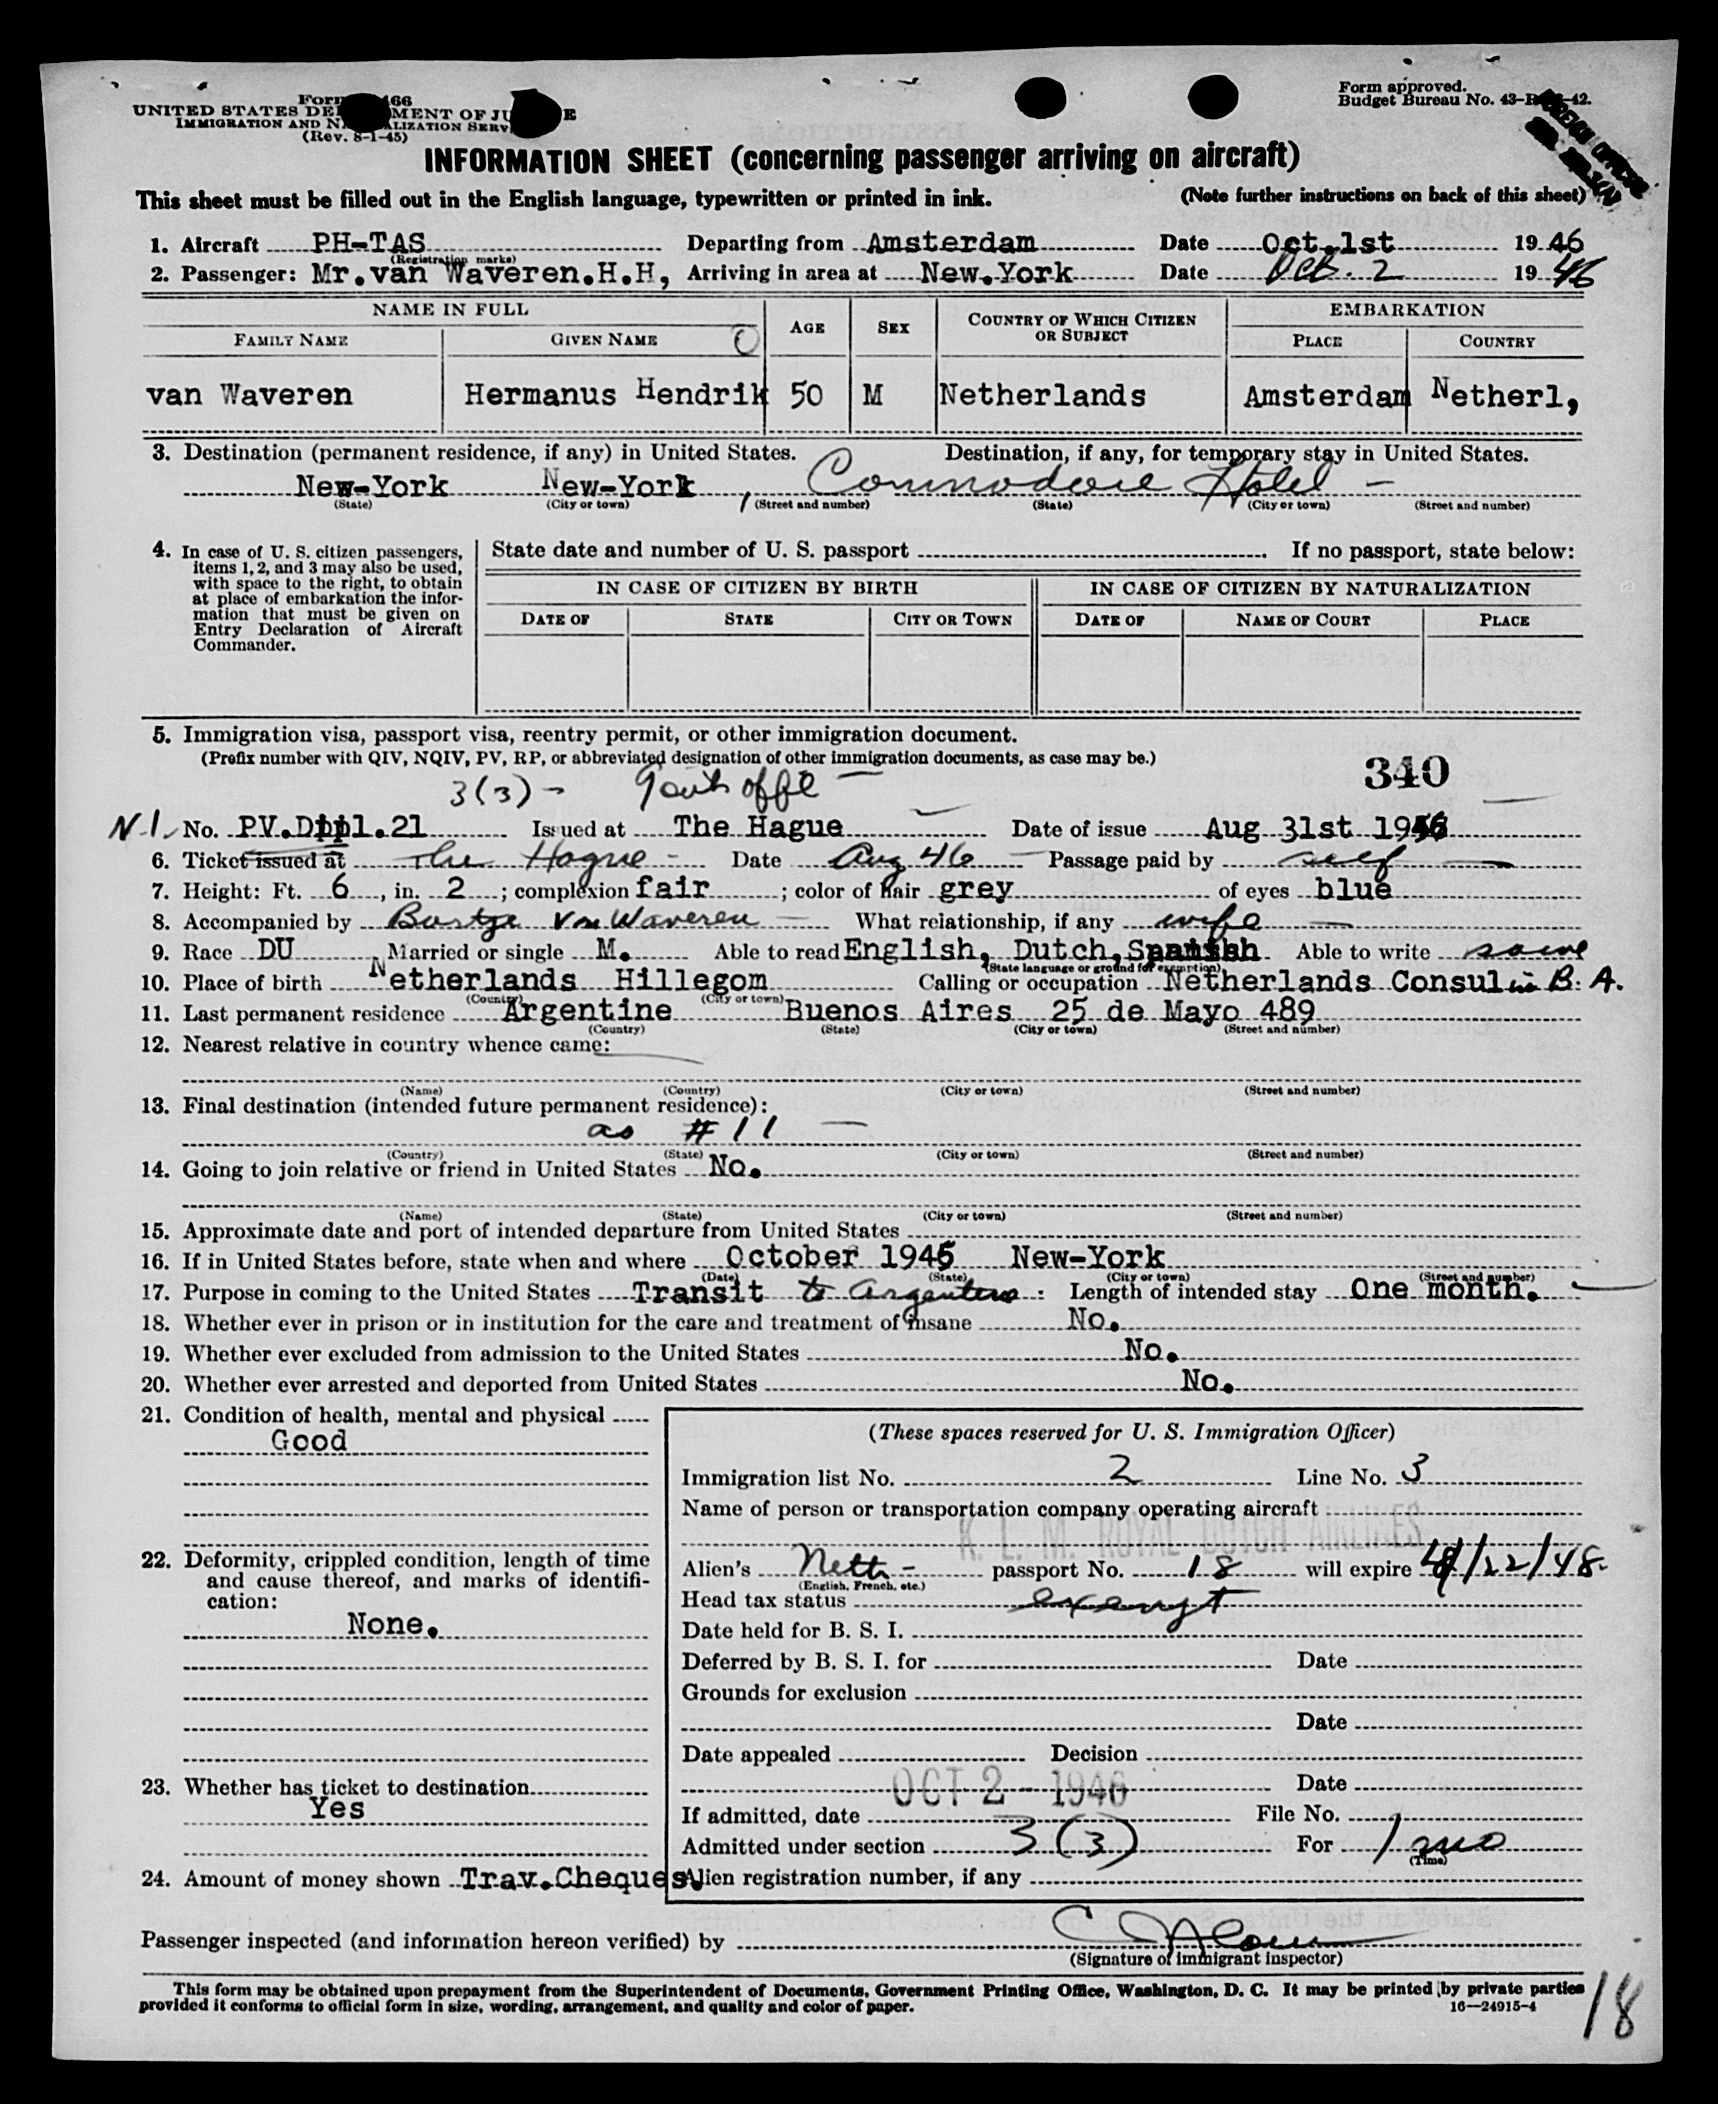 Form 466
UNITED STATES DEPARTMENT OF JUSTICE
IMMIGRATION AND NATURALIZATION SERVICE
(Rev. 8-1-45)
Form approved.
Budget Bureau No. 43-R 42.
INFORMATION SHEET (concerning passenger arriving on aircraft)
This sheet must be filled out in the English language, typewritten or printed in ink. (Note further instructions on back of this sheet)
1. Aircraft PH-TAS Departing from Amsterdam Date Oct.1st 1946
(Registration marks)
2. Passenger: Mr.van Waveren.H.H, Arriving in area at New.York Date Oct. 2 1946
NAME IN FULL AGE SEX COUNTRY OF WHICH CITIZEN OR SUBJECT EMBARKATION
FAMILY NAME GIVEN NAME PLACE COUNTRY
van Waveren Hermanus Hendrik 50 M Netherlands Amsterdam Netherl,
3. Destination (permanent residence, if any) in United States. Destination, if any, for temporary stay in United States.
New-York New-York, Commodore Hotel -
(State) (City or town) (Street and number) (State) (City or town) (Street and number)
4. In case of U. S. citizen passengers, items 1, 2, and 3 may also be used, with space to the right, to obtain at place of embarkation the information that must be given on Entry Declaration of Aircraft Commander.
State date and number of U. S. passport If no passport, state below:
IN CASE OF CITIZEN BY BIRTH IN CASE OF CITIZEN BY NATURALIZATION
DATE OF STATE CITY OR TOWN DATE OF NAME OF COURT PLACE
5. Immigration visa, passport visa, reentry permit, or other immigration document.
(Prefix number with QIV, NQIV, PV, RP, or abbreviated designation of other immigration documents, as case may be.)
340
3(3) - Govt offl -
N.I. No. PV.Dipl.21 Issued at The Hague Date of issue Aug 31st 1946
6. Ticket issued at The Hague - Date Aug 46 Passage paid by self
7. Height: Ft. 6, in. 2; complexion fair; color of hair grey of eyes blue
8. Accompanied by Van Waveren - What relationship, if any wife -
9. Race DU Married or single M. Able to read English, Dutch, Spanish Able to write same
(State language or ground for exemption)
10. Place of birth Netherlands Hillegom Calling or occupation Netherlands Consul in B. A.
(Country) (City or town)
11. Last permanent residence Argentine Buenos Aires 25 de Mayo 489
(Country) (State) (City or town) (Street and number)
12. Nearest relative in country whence came:
(Name) (Country) (City or town) (Street and number)
13. Final destination (intended future permanent residence):
as # 11 -
(Country) (State) (City or town) (Street and number)
14. Going to join relative or friend in United States No.
(Name) (State) (City or town) (Street and number)
15. Approximate date and port of intended departure from United States
16. If in United States before, state when and where October 1945 New-York
(Date) (State) (City or town) (Street and number)
17. Purpose in coming to the United States Transit to Argentina : Length of intended stay One month.
18. Whether ever in prison or in institution for the care and treatment of insane No.
19. Whether ever excluded from admission to the United States No.
20. Whether ever arrested and deported from United States No.
21. Condition of health, mental and physical
Good
(These spaces reserved for U. S. Immigration Officer)
Immigration list No. 2 Line No. 3
Name of person or transportation company operating aircraft
K. L. M. ROYAL DUTCH AIRLINES
22. Deformity, crippled condition, length of time and cause thereof, and marks of identification:
None.
Alien's Neth - passport No. 18 will expire 4/22/48.
(English, French, etc.)
Head tax status exempt
Date held for B. S. I.
Deferred by B. S. I. for Date
Grounds for exclusion
Date
Date appealed Decision
23. Whether has ticket to destination
Yes
Date
OCT 2 - 1946
If admitted, date File No.
Admitted under section 3(3) For 1 mo
(Time)
24. Amount of money shown Trav.Cheques.
Alien registration number, if any
Passenger inspected (and information hereon verified) by
(Signature of immigrant inspector)
This form may be obtained upon prepayment from the Superintendent of Documents, Government Printing Office, Washington, D. C. It may be printed by private parties
provided it conforms to official form in size, wording, arrangement, and quality and color of paper. 16—24915-4
18